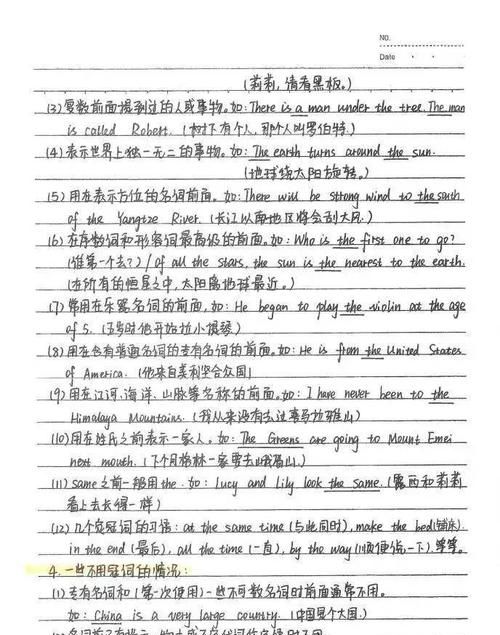 No.
Date
(莉莉,请看黑板。)
(3)复数前面提到过的人或事物。如:There is a man under the tree. The man
is called Robert. (树下有个人,那个人叫罗伯特。)
(4)表示世界上独一无二的事物。如:The earth turns around the sun.
(地球绕太阳旋转。)
(5)用在表示方位的名词前面。如:There will be strong wind to the south
of the Yangtze River. (长江以南地区将会刮大风。)
(6)在序数词和形容词最高级的前面。如:Who is the first one to go?
(谁第一个去?) / Of all the stars, the sun is the nearest to the earth.
(在所有的恒星之中,太阳离地球最近。)
(7)常用在乐器名词的前面。如:He began to play the violin at the age
of 5. (5岁时他开始拉小提琴)
(8)用在含有普通名词的专有名词的前面。如:He is from the United States
of America. (他来自美利坚合众国)
(9)用在江河、海洋、山脉等名称的前面。如:I have never been to the
Himalaya Mountains. (我从来没有去过喜马拉雅山)
(10)用在姓氏之前表示一家人。如:The Greens are going to Mount Emei
next mouth. (下个月格林一家要去峨眉山。)
(11) same之前一般用the. 如:Lucy and Lily look the same. (露西和莉莉
看上去长得一样)
(12)几个定冠词的习语:at the same time (与此同时), make the bed(铺床),
in the end (最后), all the time (一直), by the way (顺便说一下). 等等。
4.一些不用冠词的情况:
(1)专有名词和(第一次使用)一些不可数名词时前面通常不用。
如:China is a very large country. (中国是个大国.)